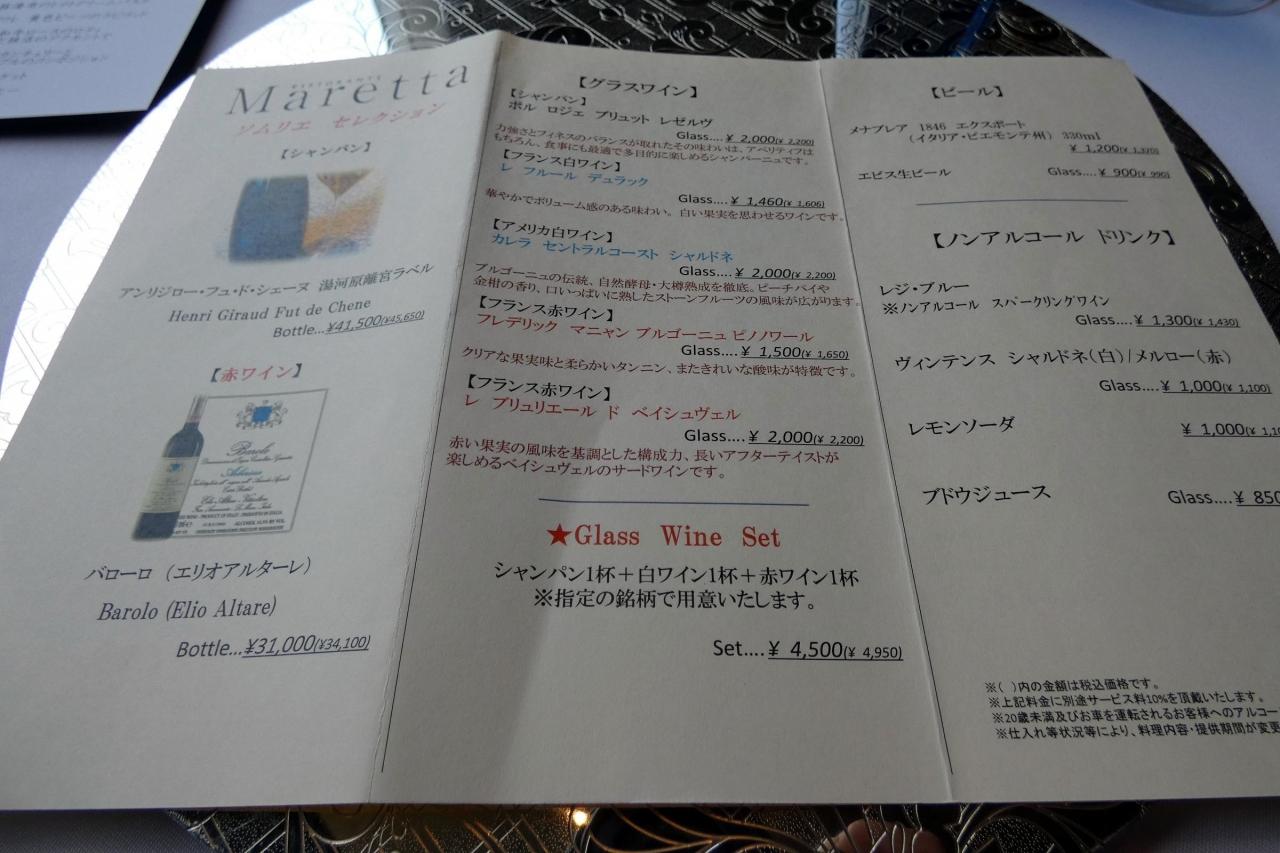 RISTORANTE
Maretta
ソムリエ セレクション
【シャンパン】
アンリジロー・フュ・ド・シェーヌ 湯河原離宮ラベル
Henri Giraud Fut de Chene
Bottle...¥41,500(¥45,650)
【赤ワイン】
Barolo
バローロ （エリオアルターレ）
Barolo (Elio Altare)
Bottle...¥31,000(¥34,100)
【グラスワイン】
【シャンパン】
ポル ロジェ ブリュット レゼルヴ
Glass....¥ 2,000(¥ 2,200)
力強さとフィネスのバランスが取れたその味わいは、アペリティフは
もちろん、食事にも最適で多目的に楽しめるシャンパーニュです。
【フランス白ワイン】
レ フルール デュラック
Glass....¥ 1,460(¥ 1,606)
華やかでボリューム感のある味わい。白い果実を思わせるワインです。
【アメリカ白ワイン】
カレラ セントラルコースト シャルドネ
Glass....¥ 2,000(¥ 2,200)
ブルゴーニュの伝統、自然酵母・大樽熟成を徹底。ピーチパイや
金柑の香り、口いっぱいに熟したストーンフルーツの風味が広がります。
【フランス赤ワイン】
フレデリック マニャン ブルゴーニュ ピノノワール
Glass....¥ 1,500(¥ 1,650)
クリアな果実味と柔らかいタンニン、またきれいな酸味が特徴です。
【フランス赤ワイン】
レ ブリュリエール ド ベイシュヴェル
Glass....¥ 2,000(¥ 2,200)
赤い果実の風味を基調とした構成力、長いアフターテイストが
楽しめるベイシュヴェルのサードワインです。
★Glass Wine Set
シャンパン1杯＋白ワイン1杯＋赤ワイン1杯
※指定の銘柄で用意いたします。
Set....¥ 4,500(¥ 4,950)
【ビール】
メナブレア 1846 エクスポート
(イタリア・ピエモンテ州) 330ml
¥ 1,200(¥ 1,320)
エビス生ビール Glass....¥ 900(¥ 990)
【ノンアルコール ドリンク】
レジ・ブルー
※ノンアルコール スパークリングワイン
Glass....¥ 1,300(¥ 1,430)
ヴィンテンス シャルドネ(白)/メルロー(赤)
Glass....¥ 1,000(¥ 1,100)
レモンソーダ ¥ 1,000(¥ 1,10
ブドウジュース Glass....¥ 850
※( )内の金額は税込価格です。
※上記料金に別途サービス料10%を頂戴いたします。
※20歳未満及びお車を運転されるお客様へのアルコー
※仕入れ等状況等により、料理内容・提供期間が変更